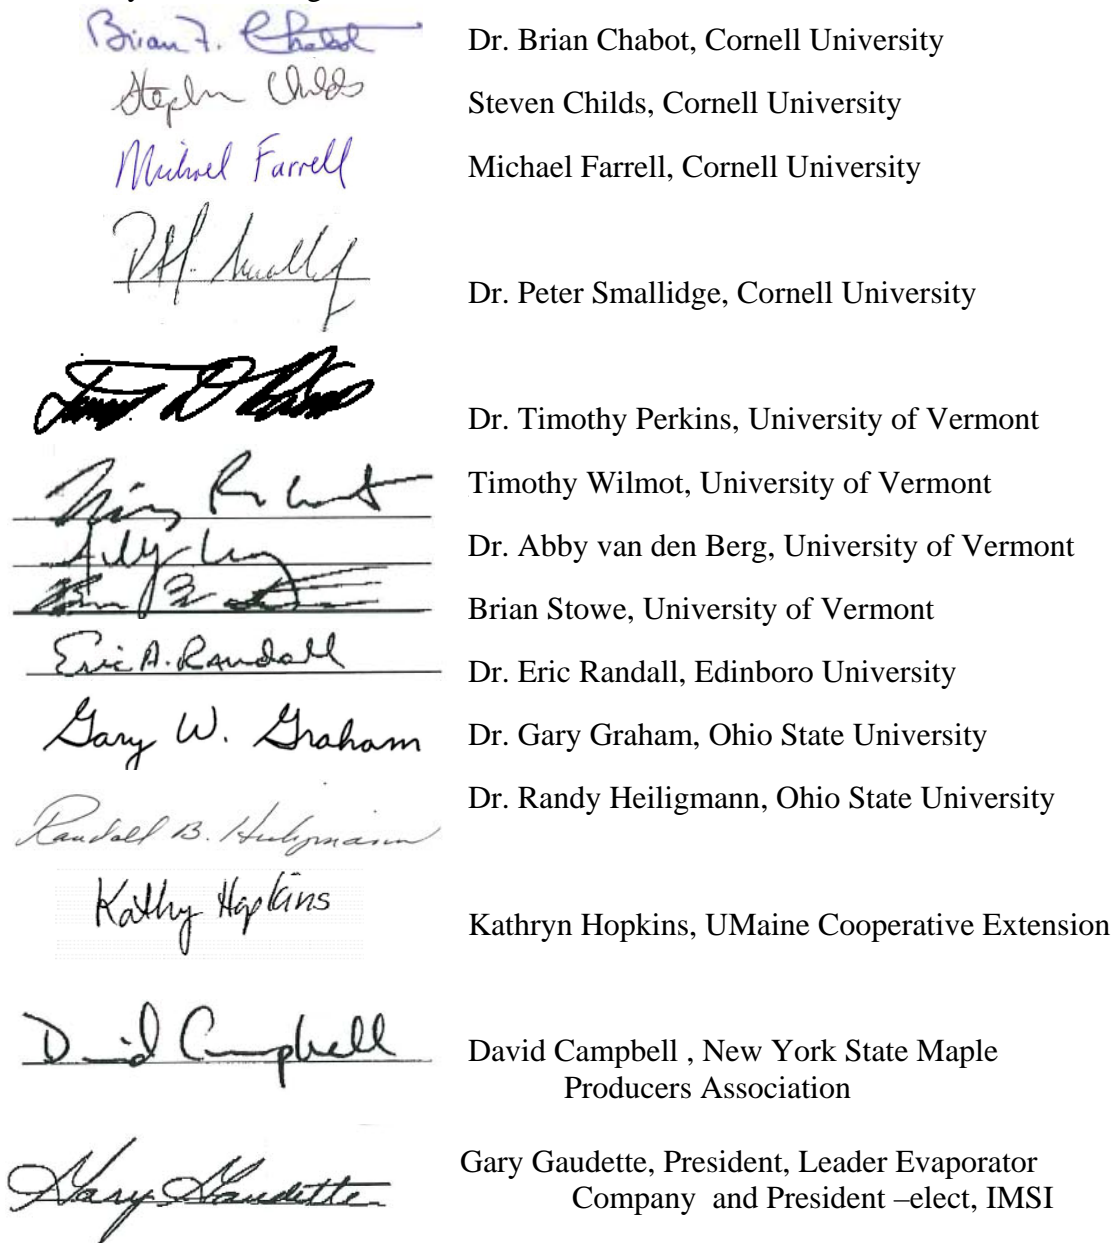 Brian F. Chabot Dr. Brian Chabot, Cornell University
Stephen Childs Steven Childs, Cornell University
Michael Farrell Michael Farrell, Cornell University
Dr. Peter Smallidge, Cornell University
Dr. Timothy Perkins, University of Vermont
Timothy Wilmot, University of Vermont
Dr. Abby van den Berg, University of Vermont
Brian Stowe, University of Vermont
Eric A. Randall Dr. Eric Randall, Edinboro University
Gary W. Graham Dr. Gary Graham, Ohio State University
Dr. Randy Heiligmann, Ohio State University
Randall B. Heiligmann
Kathy Hopkins Kathryn Hopkins, UMaine Cooperative Extension
David Campbell David Campbell , New York State Maple
Producers Association
Gary Gaudette Gary Gaudette, President, Leader Evaporator
Company and President –elect, IMSI